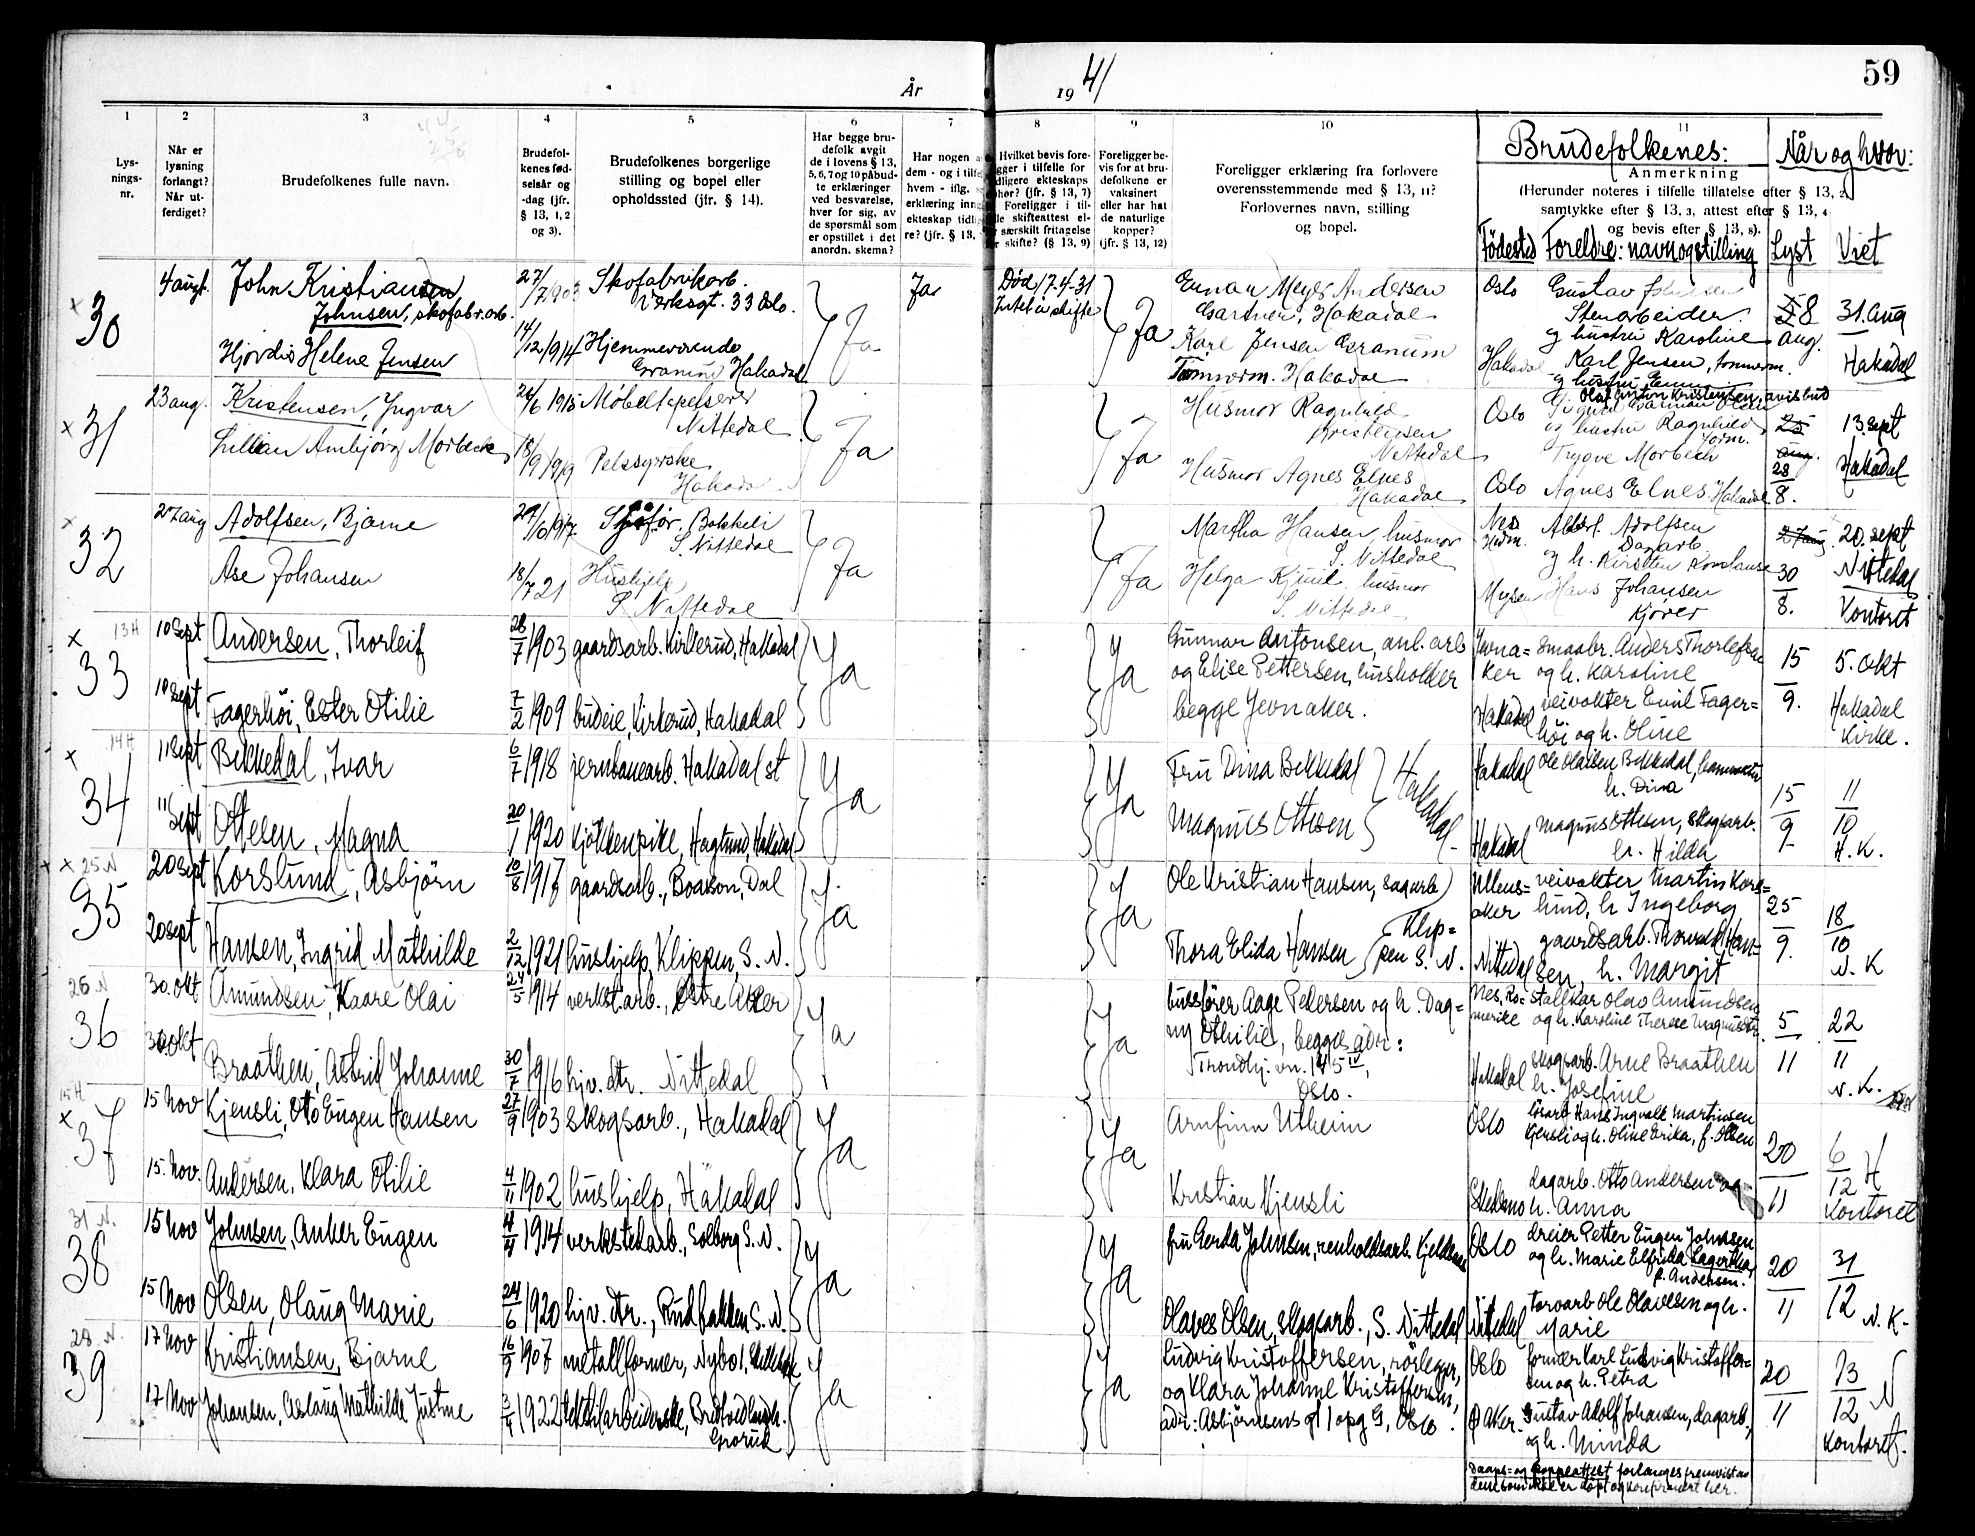 59
År
1941
1
2
3
4
5
6
7
8
9
10
11
Lys-
nings-
nr.
Når er
lysning
forlangt?
Når ut-
ferdiget?
Brudefolkenes fulle navn.
Brudefol-
kenes fød-
selsår og
-dag (jfr.
§ 13, 1, 2
og 3).
Brudefolkenes borgerlige
stilling og bopel eller
opholdssted (jfr. § 14).
Har begge bru-
defolk avgit
de i lovens § 13,
5, 6, 7 og 10 påbud-
te erklæringer
ved besvarelse,
hver for sig, av
de spørsmål som
er opstillet i det
anordn. skema?
Har nogen a
dem - og i tilfe
hvem - iflg.
erklæring inn
ekteskap tidli
re? (jfr. § 13,
Hvilket bevis fore-
gger i tilfelle for
dligere ekteskaps
phør? (jfr. § 13, 7)
Foreligger i til-
le skifteattest el-
særskilt fritagelse
skifte? (§ 13, 9)
Foreligger be-
vis for at bru-
defolkene er
vaksinert
eller har hat
de naturlige
kopper?
(jfr. § 13, 12)
Foreligger erklæring fra forlovere
overensstemmende med § 13, 11?
Forlovernes navn, stilling
og bopel.
Brudefolkenes:
Anmerkning
(Herunder noteres i tilfelle tillatelse efter § 13, 2
samtykke efter § 13, 3, attest efter § 13, 4
og bevis efter § 13, 8).
Når og hvor:
Fødested Foreldre: navn og stilling Lyst Viet
30
4 augt.
John Kristiansen
Johnsen, skofabr.arb.
27/7 1903
Skofabrikarb.
Verksgt. 33 Oslo.
Ja
Død 17.4-31
Intet å skifte
Einar Meyer Andersen
Gartner, Hakadal
Oslo
Gustav Johnsen
Stenarbeider
og hustru Karoline
28
aug.
31. aug
Hakadal
Hjørdis Helene Jensen
14/12 1914
Hjemmeværende
Granum Hakadal
Ja
Ja
Karl Jensen Granum
Tømmerm. Hakadal
Hakadal
Karl Jensen, tømmerm.
og hustru Emma
31
23 aug.
Kristensen, Ingvar
26/6 1915
Møbeltapetserer
Nittedal
Ja
Ja
Husmor Ragnhild
Kristensen
Nittedal
Oslo
Olaf Anton Kristensen, avisbud
og hustru Ragnhild
25
aug.
28
8.
13. sept
Hakadal
Lillian Ambjørg Morbech
18/9 1919
Pelssyerske
Hakadal
Husmor Agnes Elnes
Hakadal
Oslo
Trygve Morbech
Agnes Elnes. Hakadal
32
27 aug
Adolfsen, Bjarne
29/6 1917
Sjåfør. Bakkeli
S. Nittedal
Ja
Ja
Martha Hansen, husmor
S. Nittedal
Nes
Hedm.
Adolfsen
Dagarb.
og h. Kirsten Konstanse
27 aug.
30
8.
20. sept
Nittedal
Kontoret
Åse Johansen
18/7 21
Hushjelp
S. Nittedal
Helga, husmor
S. Nittedal
Mysen
Hans Johansen
Kjører
33
13 H
10 Sept
Andersen, Thorleif
28/7 1903
gaardsarb. Kirkerud, Hakadal
Ja
Ja
Gunnar Antonsen, anl. arb
og Elise Pettersen, husholder
begge Jevnaker.
Jevna=
ker
Smaabr. Anders Thorlefsen
og h. Karoline
15
9.
5. okt
Hakadal
Kirke.
10 Sept
Fagerhöi, Ester Otilie
7/2 1909
budeie, Kirkerud, Hakadal
Hakadal
veivokter Emil Fager=
höi og h. Oline
34
14 H
11 Sept
Bekkedal, Ivar
6/7 1918
jernbanearb. Hakadal st
Ja
Ja
Fru Dina Bekkedal
Hakadal
Hakadal
Ole Olaisen Bekkedal, banevokter
h. Dina
15
9
11
10
H. K.
11 Sept
Ottesen, Magna
20/1 1920
kjökkenpike, Haglund, Hakadal
Magnus Ottesen
Hakadal
Magnus Ottesen, skogsarb.
h. Hilda
35
25 N
20 Sept
Korslund, Asbjörn
10/8 1917
gaardsarb., Boasson, Dal
Ja
Ja
Ole Kristian Hansen, sagarb
Klip=
pen S. N.
Ullens=
aker
veivokter Martin Kors=
lund, h Ingeborg
25
9.
18
10
N. K
20 Sept
Hansen, Ingrid Mathilde
2/12 1921
hushjelp, Klippen, S. N.
Thora Elida Hansen
Nittedal
gaardsarb. Thorvald Han=
sen, h. Margit
36
26 N
30. okt
Amundsen, Kaare Olai
24/5 1914
verkst.arb., Östre Aker
Ja
Ja
bussfører Aage Pedersen og h. Dag=
ny Othilie, begges adr:
Trondhj. vn. 145 IV,
Oslo.
Nes, Ro=
merike
stallkar Olav Amundsen
og h. Karoline Therese
5
11
22
11
N. K.
30. okt
Braathen, Astrid Johanne
30/7 1916
hjv. dtr. Nittedal
Hakadal
skogsarb. Arne Braathen
h. Josefine
37
15 H
15 Nov
Kjensli, Otto Eugen Hansen
27/9 1903
skogsarb., Hakadal
Ja
Ja
Arnfinn Utheim
Oslo
Hans Ingvald Martinsen
Kjensli og h. Oline Erika, f. Olsen
20
11
6
12 H
Kontoret
15. Nov.
Andersen, Klara Otilie
4/11 1902
hushjelp, Hakadal
Kristian Kjensli
Skedsmo
dagarb. Otto Andersen og
h. Anna
38
31 N.
15 Nov
Johnsen, Anker Eugen
4/4 1914
verkstedarb., Solborg S. N.
Ja
Ja
fru Gerda Johnsen, renholdsarb.
Oslo
dreier Petter Eugen Johnsen
og h. Marie Elfrida Lagertha,
f. Andersen.
20
11
31
12 N. K-
15 Nov
Olsen, Olaug Marie
24/6 1920
hjv. dtr., Rudbakken S. N.
Olaves Olsen, skogsarb., S. Nittedal
Nittedal
torvarb Ole Olavesen og h.
Marie
39
28. N.
17 Nov
Kristiansen, Bjarne
16/9 1907
metallformer, Nybo 1,
Ja
Ja
Ludvig Kristoffersen, rörlegger,
og Klara Johanne Kristoffersen,
adr: Asbjörnsens gt 1 opg G, Oslo.
Oslo
former Karl Ludvig Kristoffer=
sen og h. Petra
20
11
13
12 N
Kontoret.
17 Nov
Johansen, Aslaug Mathilde Justine
3/4 1922
tekstilarbeiderske, Bredtvedhaugen
Grorud
Ø Aker.
Gustav Adolf Johansen, dagarb.,
og h. Minda
Daaps= og koppeattest forlanges fremvist av
dem som ikke er döpt og konfirmert her.